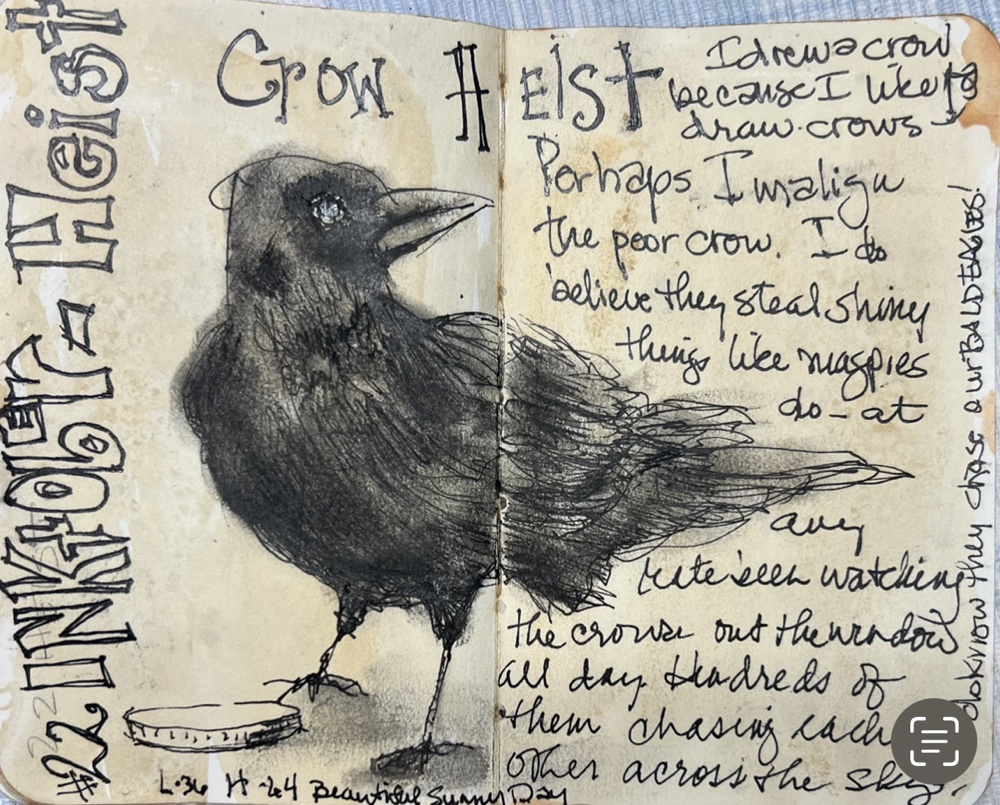 #22 INKTOBER - Heist
Crow HEIST
I drew a crow
because I like to
draw crows
Perhaps I malign
the poor crow. I do
believe they steal shiny
things like magpies
do - at
any
rate I'een watching
the crows out the window
all day Hundreds of
them chasing each
other across the sky.
I do know they chase our BALD EAGLES!
L.36 H-64 Beautiful Sunny Day